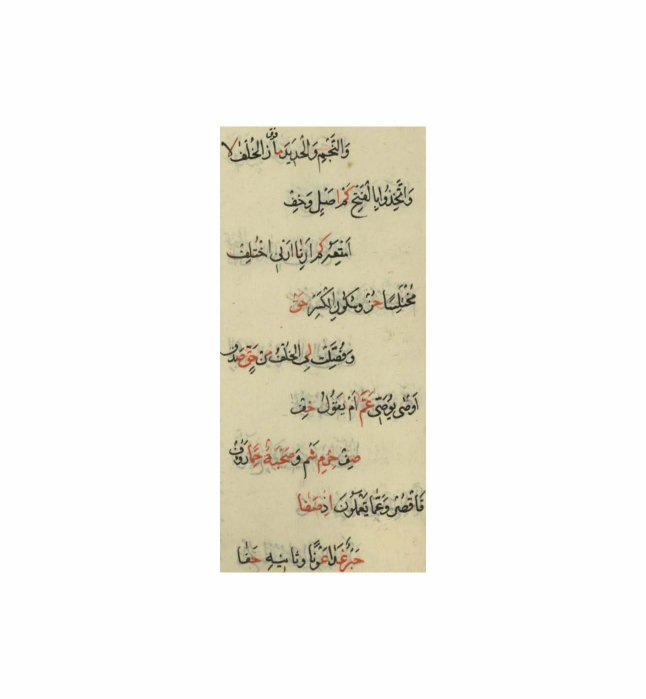 وَالنَّجْمِ وَالْحَدِيدِ مَازَ الْخُلْفُ لَا
وَاتَّخِذُوا بِالْفَتْحِ كَمْ أَصْلٍ وَخِفْ
أَمْتِعُهُ كَمْ أَرِنَا أَرْنِي اخْتُلِفْ
مُخْتَلِسًا حُزْ وَسُكُونُ الْكَسْرِ حَقْ
وَفُصِّلَتْ لِي الْخُلْفُ مِنْ حَقٍّ صَدَقْ
أَوْصَى بِوَصَّى عَمَّ أَمْ يَقُولُ خِفْ
صِفْ حِرْمِ شِمْ وَصُحْبَةٌ حِمًا رَؤُفْ
فَاقْصُرْ وَعَمَّا يَعْمَلُونَ إِذْ صَفَا
حَبْرٌ غَدَا عَوْنًا وَثَانِيهِ حَفَا